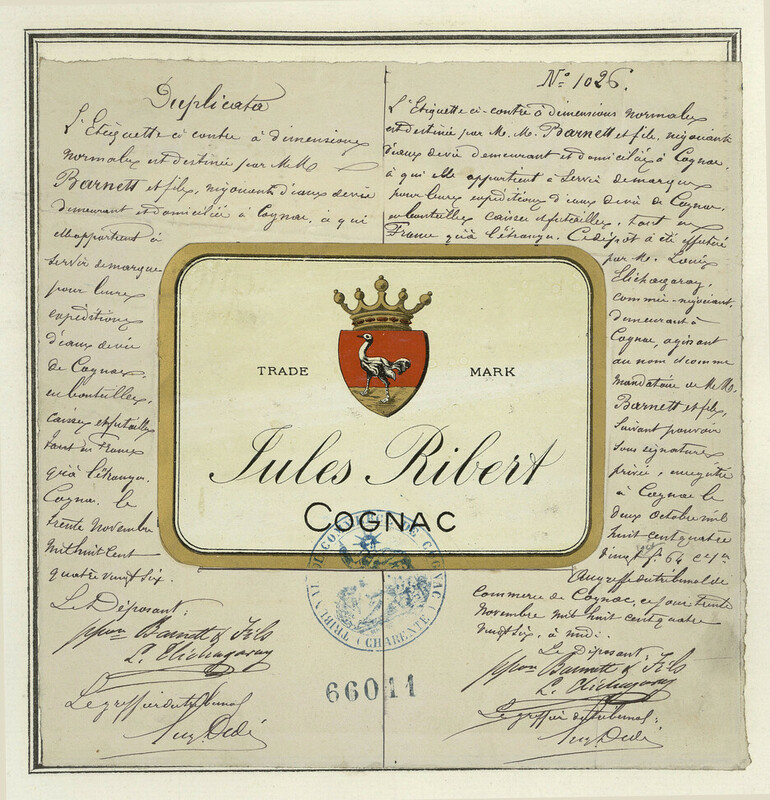 Duplicata
L'Etiquette ci-contre à dimensions
normales est destinée par M.M.
Barnett et fils, négociants d'eaux de vie
demeurant et domiciliés à Cognac, à qui
elle appartient à
servir de marque
pour leurs
expéditions
d'eaux de vie
de Cognac,
en bouteilles,
caisses et futailles
tant en France
qu'à l'étranger.
Cognac, le
trente Novembre
mil huit cent
quatre vingt six.
Le Déposant:
ppon Barnett & Fils
L. Elichagaray
Le greffier du tribunal
Aug. Dedé
N° 1026.
L'Etiquette ci-contre à dimensions normales
est destinée par M. M. Barnett et fils, négociants
d'eaux de vie demeurant et domiciliés à Cognac,
à qui elle appartient à servir de marque
pour leurs expéditions d'eaux de vie de Cognac,
en bouteilles caisses et futailles, tant en
France qu'à l'étranger. Ce dépôt a été effectué
par M. Louis
Elichagaray,
commis-négociant,
demeurant à
Cognac, agissant
au nom et comme
mandataire de M.M.
Barnett et fils,
suivant pouvoir
sous signatures
privées, enregistré
à Cognac le
deux Octobre mil
huit cent quatre
vingt f. 64 c.
Au greffe du tribunal de
Commerce de Cognac, ce jour trente
Novembre mil huit cent quatre
vingt six, à midi.
Le Déposant:
ppon Barnett & Fils
L. Elichagaray
Le greffier du tribunal:
Aug. Dedé
TRADE MARK
Jules Ribert
COGNAC
TRIBUNAL DE COMMERCE DE COGNAC (CHARENTE)
66011